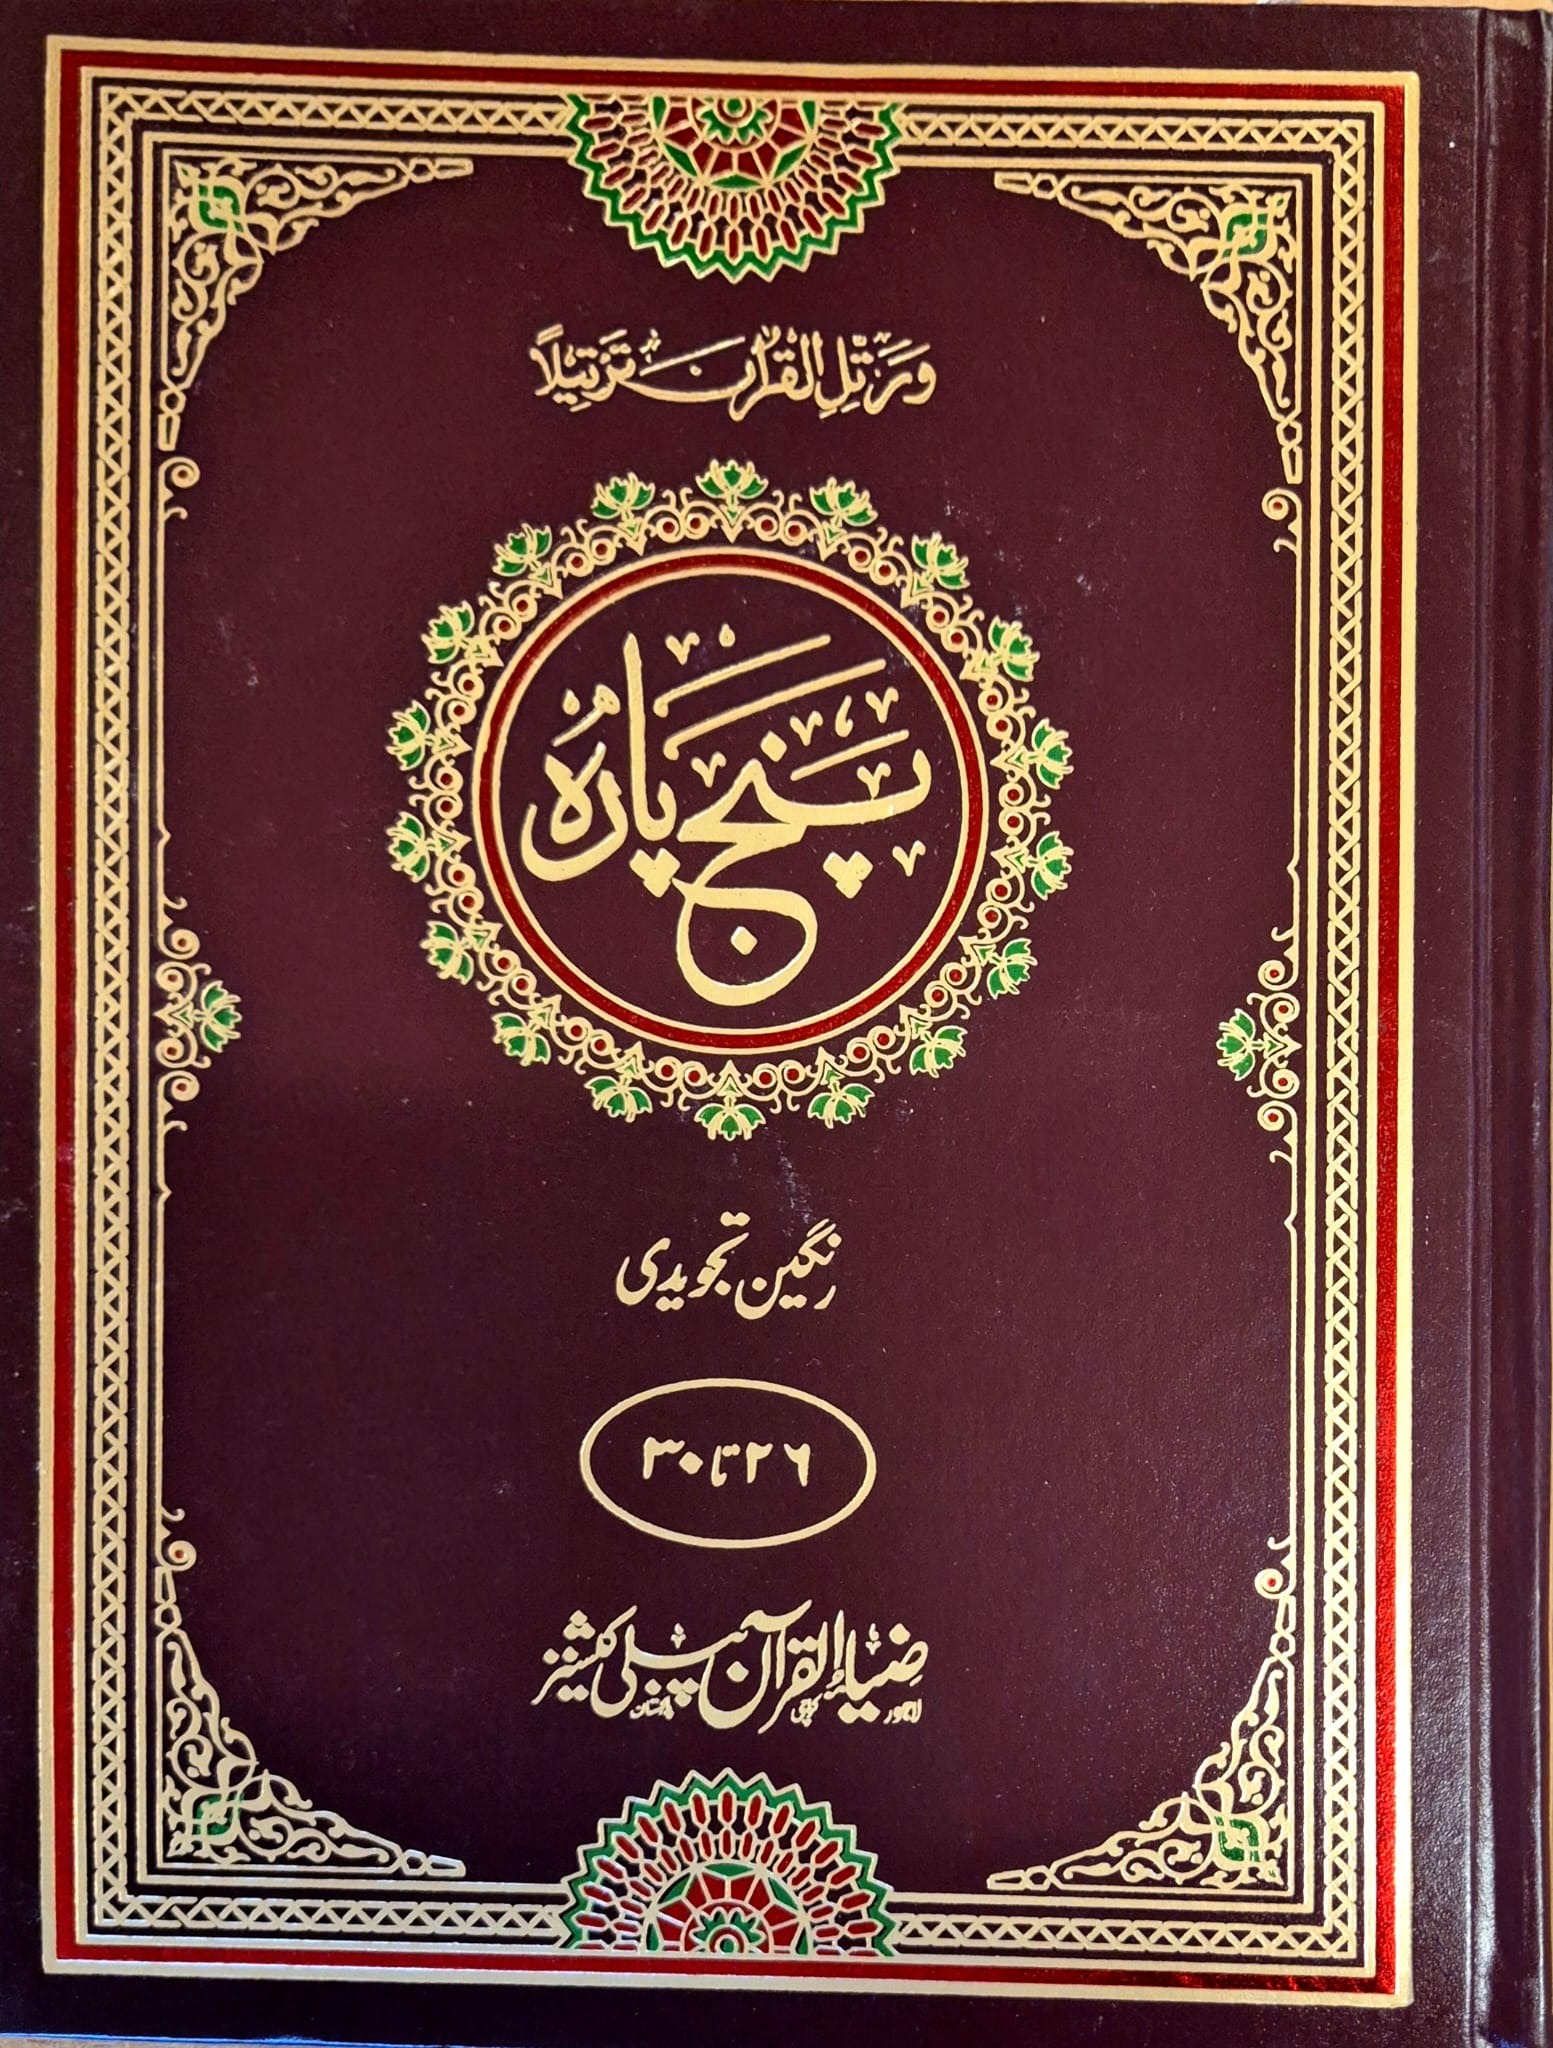 وَرَتِّلِ الْقُرْاٰنَ تَرْتِيْلًا
پنج پارہ
رنگین تجویدی
۲۶ تا ۳۰
ضیاء القرآن پبلی کیشنز
لاہور کراچی پاکستان